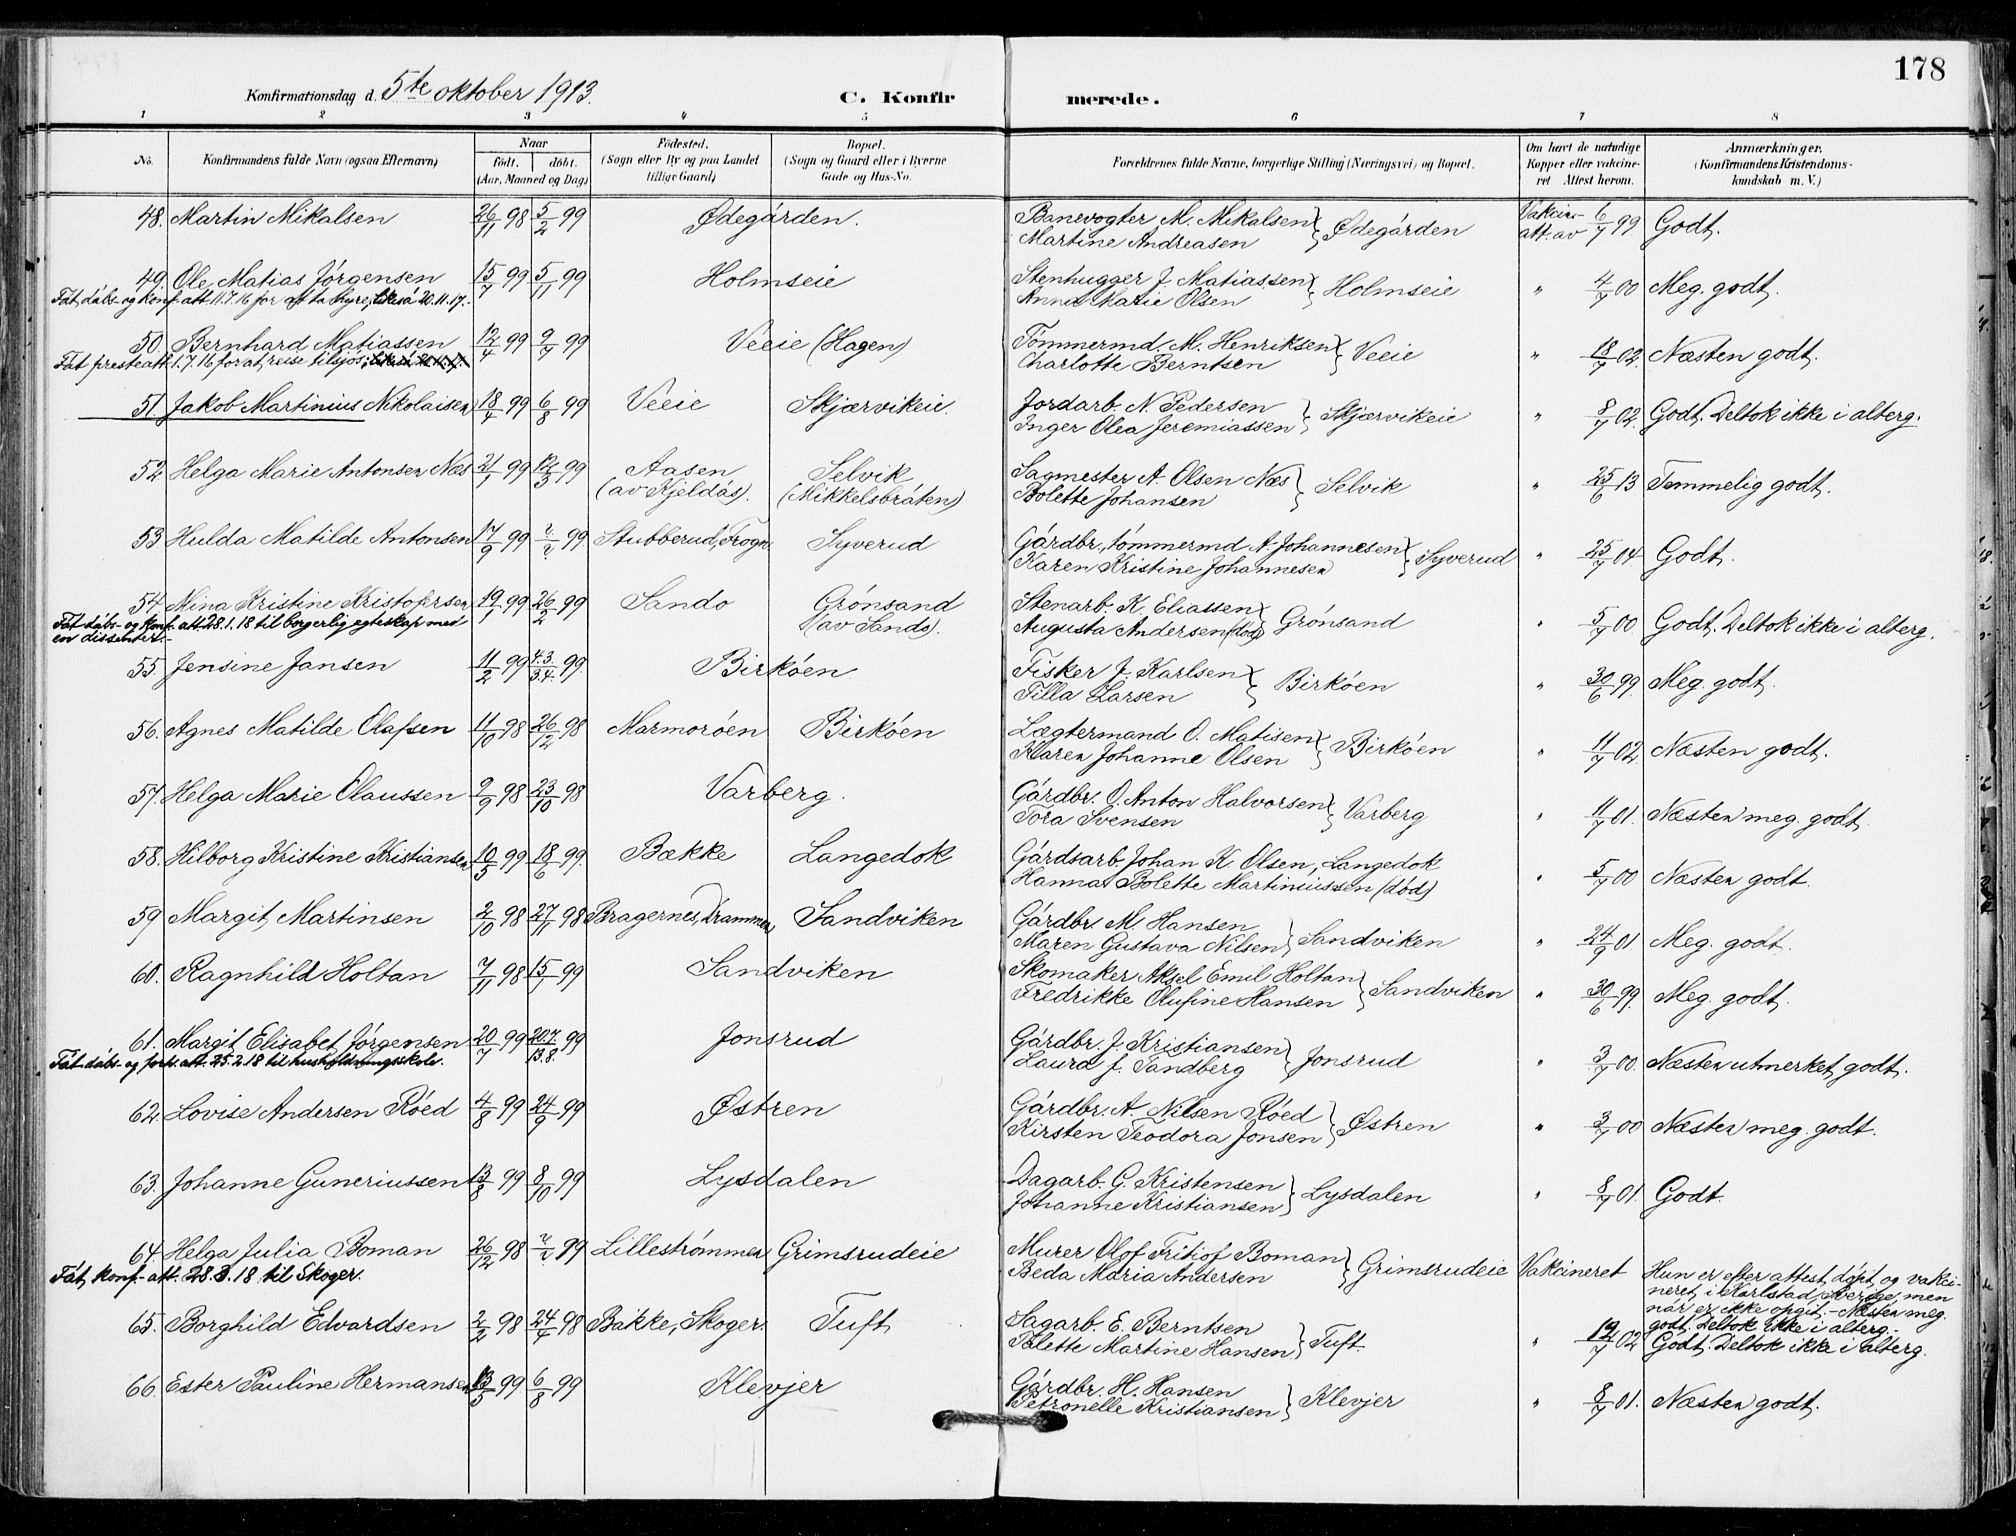 178
Konfirmationsdag d. 5te oktober 1913.
C. Konfirmerede.
1 2 3 4 5 6 7 8
No. Konfirmandens fulde Navn (ogsaa Efternavn) Naar født. døbt. (Aar, Maaned og Dag) Fødested. (Sogn eller By og paa Landet tillige Gaard) Bopæl. (Sogn og Gaard eller i Byerne Gade og Hus-No. Forældrenes fulde Navne, borgerlige Stilling (Næringsvei) og Bopæl. Om havt de naturlige Kopper eller vakcineret Attest herom. Anmærkninger. (Konfirmandens Kristendomskundskab m. V.)
48. Martin Mikalsen 26/11 98 5/2 99 Ødegården. Banevogter M. Mikalsen Martine Andreasen } Ødegården Vakcin-att. av 6/7 99 Godt.
49. Ole Matias Jørgensen 15/7 99 5/11 99 Holmseie Stenhugger J. Matiassen Anna Marie Olsen } Holmseie " 4/7 00 Meg. godt.
Fåt dåbs- og konf. att. 11.7.16 for at ta hyre, likeså 20.11.17.
50. Bernhard Matiassen 12/4 99 9/7 99 Veeie (Hagen) Tømmermd. M. Henriksen Charlotte Berntsen } Veeie " 18/7 02. Næsten godt.
Fåt presteatt. 1.7.16 for at reise tilsjøs;
51. Jakob Martinius Nikolaisen 18/4 99 6/8 99 Veeie Skjærvikeie. Jordarb. N. Pedersen Inger Olea Jeremiassen } Skjærvikeie " 8/7 02. Godt. Deltok ikke i alterg.
52. Helga Marie Antonsen Næs 21/1 99 12/3 99 Aasen (av Kjeldås). Selvik (Mikkelsbråten) Sagmester A. Olsen Næs Bolette Johansen } Selvik " 25/6 13 Temmelig godt.
53 Hulda Matilde Antonsen 17/9 99 ?/? 99 Stubberud, Frogn Syverud Gårdbr., tømmermd A. Johannesen Karen Kristine Johannesen } Syverud " 25/7 04 Godt.
54. Nina Kristine Kristofersen 19/1 99 26/2 99 Sando Grønsand (av Sando). Stenarb. K. Eliassen Augusta Andersen (død) } Grønsand " 5/7 00 Godt. Deltok ikke i alterg.
Fåt dåbs- og konf. att. 28.1.18 til borgerlig egteskap med
en dissenter.-
55. Jensine Jansen 11/2 99 4.3./3.4. 99. Birkøen Fisker J. Karlsen Tilla Larsen } Birkøen " 30/6 99 Meg. godt.
56. Agnes Matilde Olafsen 11/10 98 26/12 98 Marmorøen Birkøen Lægtermand O. Matisen Karen Johanne Olsen } Birkøen " 11/7 02. Næsten godt.
57. Helga Marie Olaussen 9/9 98 23/10 98 Varberg. Gårdbr. O. Anton Halvorsen Tora Svensen } Varberg " 11/7 01. Næsten meg. godt.
58. Hilborg Kristine Kristiansen 10/5 99 18/6 99. Bække Langedok Gårdsarb. Johan K. Olsen, Langedok Hanna Bolette Martiniussen (død) " 5/7 00 Næsten godt.
59 Margit Martinsen 2/10 98 27/11 98 Bragernes, Drammen Sandviken Gårdbr. M. Hansen Maren Gustava Nilsen } Sandviken " 24/9 01 Meg. godt.
60. Ragnhild Holtan 7/11 98 15/1 99 Sandviken Skomaker Aksel Emil Holtan Fredrikke Olufine Hansen } Sandviken " 30/6 99. Meg. godt.
61. Margit Elisabet Jørgensen 20/7 99 20.7/13.8. 99 Jonsrud Gårdbr. J. Kristiansen Laura J. Sandberg } Jonsrud " 3/7 00. Næsten utmerket godt.
Fåt dåbs- og forl. att. 25.2.18 til husholdningsskole.
62. Lovise Andersen Røed 4/8 99 24/9 99 Østren Gårdbr. A. Nilsen Røed Kirsten Teodora Jonsen } Østren " 3/7 00 Næsten meg. godt.
63. Johanne Guneriussen 13/8 99 8/10 99 Lysdalen Dagarb. G. Kristensen Johanne Kristiansen } Lysdalen " 8/7 01. Godt.
64. Helga Julia Boman 26/12 98 ?/? 99 Lillestrømmen Grimsrudeie Murer Olof Fritiof Boman Beda Maria Andersen } Grimsrudeie Vakcineret Hun er efter attest døpt og vakcineret i Karlstad, Sverige, men når er ikke opgit. - Næsten meg. godt. Deltok ikke i alterg.-
Fåt konf.- att. 28.3.18 til Skoger.
65. Borghild Edvardsen 2/2 98 24/4 98 Bakke, Skoger. Tuft Sagarb. E. Berntsen Bolette Martine Hansen } Tuft. " 19/7 02 Godt. Deltok ikke i alterg.
66. Ester Pauline Hermansen 13/5 99 6/8 99 Klevjer Gårdbr. H. Hansen Petronelle Kristiansen } Klevjer " 8/7 01. Næsten godt.